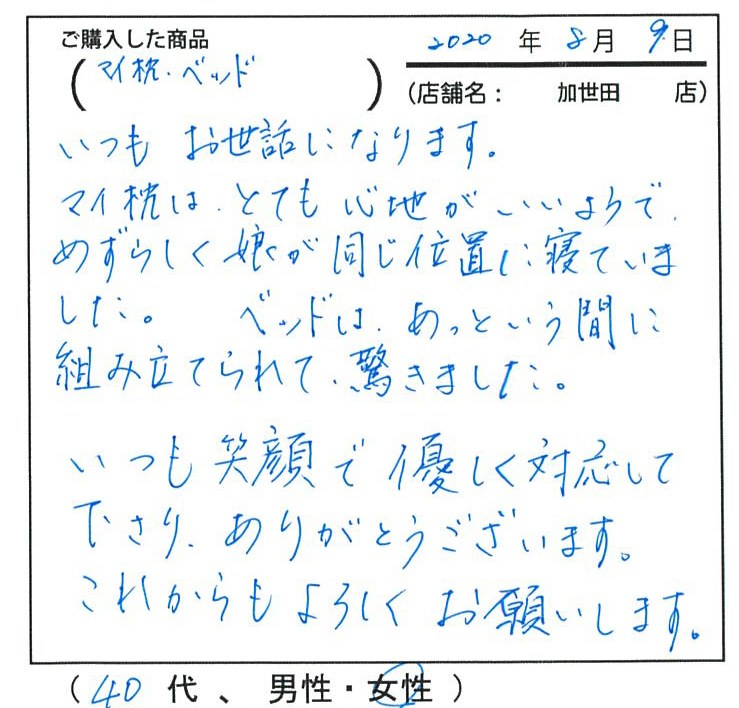 ご購入した商品
2020 年 8 月 9 日
(マイ枕・ベッド)
(店舗名： 加世田 店)
いつも お世話になります。
マイ枕は、とても 心地が いいようで、
めずらしく 娘が 同じ位置に 寝ていま
した。 ベッドは、あっという間に
組み立てられて、驚きました。
いつも 笑顔で 優しく対応して
下さり、ありがとうございます。
これからも よろしく お願いします。
(40 代 、 男性・女性 )